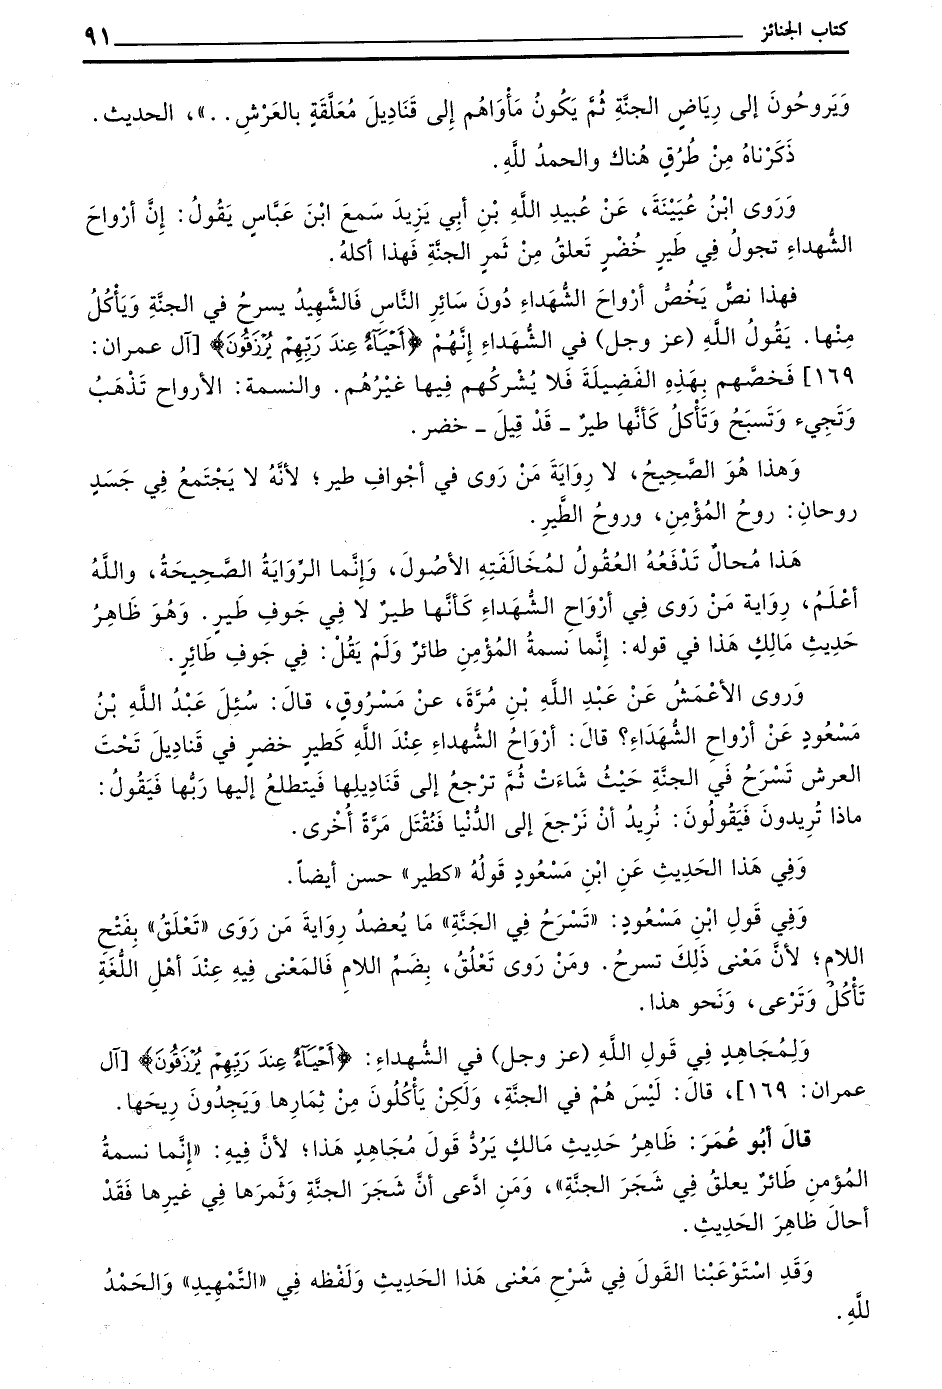 كتاب الجنائز ٩١
وَيَروحُونَ إلى رِيَاضِ الجنَّةِ ثُمَّ يَكُونُ مَأْوَاهُم إِلى قَنَادِيلَ مُعَلَّقَةٍ بالعَرْشِ. . .»، الحديث.
ذَكَرْناهُ مِنْ طُرُقٍ هُناك والحمدُ للَّهِ.
وَرَوى ابْنُ عُيَيْنَةَ، عَنْ عُبيدِ اللَّهِ بْنِ أبي يَزِيدَ سَمعَ ابْنَ عَبَّاسٍ يَقُولُ: إنَّ أرْواحَ
الشُّهداءِ تجولُ فِي طَيرٍ خُضْرٍ تَعلقُ مِنْ ثَمرِ الجنَّةِ فَهذا أكلهُ.
فهذا نصٌّ يَخُصُّ أرْواحَ الشُّهَداءِ دُونَ سَائِرِ النَّاسِ فَالشَّهِيدُ يسرحُ في الجنَّةِ وَيَأْكُلُ
مِنْها. يَقُولُ اللَّهِ (عز وجل) في الشُّهَداءِ إنَّهُمْ ﴿أَحْيَآءٌ عِندَ رَبِّهِمْ يُرْزَقُونَ﴾ [آل عمران:
١٦٩] فَخصَّهم بِهَذِهِ الفَضِيلَةَ فَلا يُشْركُهم فِيها غَيْرُهُم. والنسمة: الأرواح تَذْهَبُ
وَتَجِيء وَتَسبَحُ وَتَأْكلُ كَأنَّها طيرٌ ــ قَدْ قِيلَ ــ خضر.
وَهذا هُوَ الصَّحِيحُ، لا رِوَايَةَ مَنْ رَوى في أجْوافِ طير؛ لأنَّهُ لا يَجْتَمعُ فِي جَسَدٍ
روحانِ: روحُ المُؤْمنِ، وروحُ الطَّيرِ.
هَذا مُحالٌ تَدْفَعُهُ العُقُولُ لمُخَالَفَتِهِ الأصُولَ، وَإنَّما الرِّوَايَةُ الصَّحِيحَةُ، واللَّهُ
أعْلَمُ، رِوَاية مَنْ رَوى فِي أرْوَاحِ الشُّهَداءِ كَأنَّها طيرٌ لا فِي جَوفِ طَيرٍ. وَهُوَ ظَاهِرُ
حَدِيثِ مَالِكٍ هَذا في قوله: إنَّما نسمةُ المُؤْمنِ طائرٌ وَلَمْ يَقُلْ: فِي جَوفِ طَائِرٍ.
وَروى الأعْمَشُ عَنْ عَبْدِ اللَّهِ بْنِ مُرَّةَ، عنْ مَسْرُوقٍ، قالَ: سُئِلَ عَبْدُ اللَّهِ بْنُ
مَسْعُودٍ عَنْ أرْواحِ الشُّهَدَاءِ؟ قالَ: أرْوَاحُ الشُّهداءِ عِنْدَ اللَّهِ كَطيرٍ خضرٍ في قَناديلَ تَحْتَ
العرشِ تَسْرَحُ فَي الجنَّةِ حَيْثُ شَاءَتْ ثُمَّ ترْجعُ إلى قَنَادِيلِها فَيتطلعُ إليها رَبُّها فَيَقُولُ:
ماذا تُرِيدونَ فَيَقُولُونَ: نُرِيدُ أنْ نَرْجعَ إلى الدُّنْيا فَنُقْتَل مَرَّةً أُخْرى.
وَفِي هَذا الحَدِيثِ عَنِ ابْنِ مَسْعُودٍ قَولُهُ «كطير» حسن أيضاً.
وَفِي قَولِ ابْنِ مَسْعُودٍ: «تَسْرَحُ فِي الجَنَّةِ» مَا يُعضدُ رِوايةَ مَن رَوَى «تَعْلَقُ» بِفَتْحِ
اللامِ؛ لأنَّ مَعْنى ذَلِكَ تسرحُ. ومَنْ رَوى تَعْلُقُ، بِضَمِّ اللامِ فَالمَعْنى فِيهِ عِنْدَ أهْلِ اللُّغَةِ
تَأْكُلُ وَتَرْعى، وَنَحو هذا.
وَلِمُجَاهِدٍ فِي قَولِ اللَّهِ (عز وجل) في الشُّهداءِ: ﴿أَحْيَآءٌ عِندَ رَبِّهِمْ يُرْزَقُونَ﴾ [آل
عمران: ١٦٩]، قالَ: لَيْسَ هُمْ في الجنَّةِ، وَلَكِنْ يَأْكُلُونَ مِنْ ثِمَارِها وَيَجِدُونَ رِيحَها.
قالَ أبُو عُمَرَ: ظَاهِرُ حَدِيثِ مَالكٍ يَرُدُّ قَولَ مُجَاهِدٍ هَذا؛ لأنَّ فِيهِ: «إنَّما نسمةُ
المُؤمنِ طَائرٌ يعلقُ فِي شَجَرَ الجنَّةِ»، وَمَنِ ادَّعى أنَّ شَجَرَ الجنَّةِ وَثَمرَها فِي غيرِها فَقَدْ
أحالَ ظاهِرَ الحَدِيثِ.
وَقَدِ اسْتَوْعَبْنا القَولَ فِي شَرْحِ مَعْنى هَذا الحَدِيثِ وَلَفْظه فِي «التَّمْهِيدِ» وَالحَمْدُ
للَّهِ.